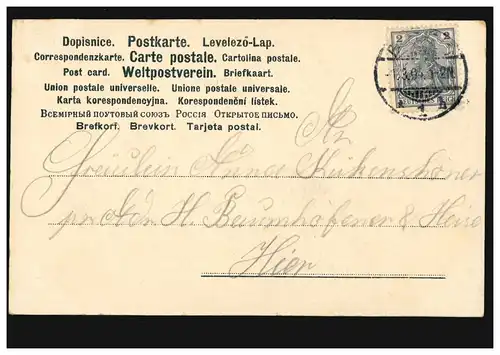 Dopisnice. Postkarte. Levelező-Lap.
Correspondenzkarte. Carte postale. Cartolina postale.
Post card. Weltpostverein. Briefkaart.
Union postale universelle. Unione postale universale.
Karta korespondenoyjna. Korespondenční lístek.
Всемірный поутовый союзъ Россія Открытое письмо.
Brefkort. Brevkort. Tarjeta postal.
2 2
An
Fräulein Kükenshöner
pr Adr H. Baumhöfener & Heise
Hier